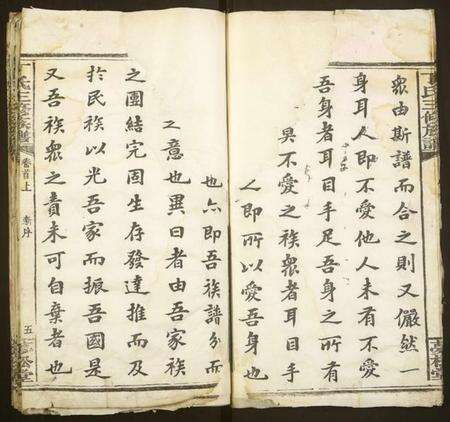 氏三修族譜
衆由斯譜而合之則又儼然一
身耳人即不愛他人未有不愛
吾身者耳目手足吾身之所有
具不愛之族衆者耳目手
人即所以愛吾身也
也亦即吾族譜分而
之意也異日者由吾家族
之團結完固生存發達推而及
於民族以光吾家而振吾國是
又吾族衆之責未可自棄者也
氏三修族譜
卷首上
五
松堂